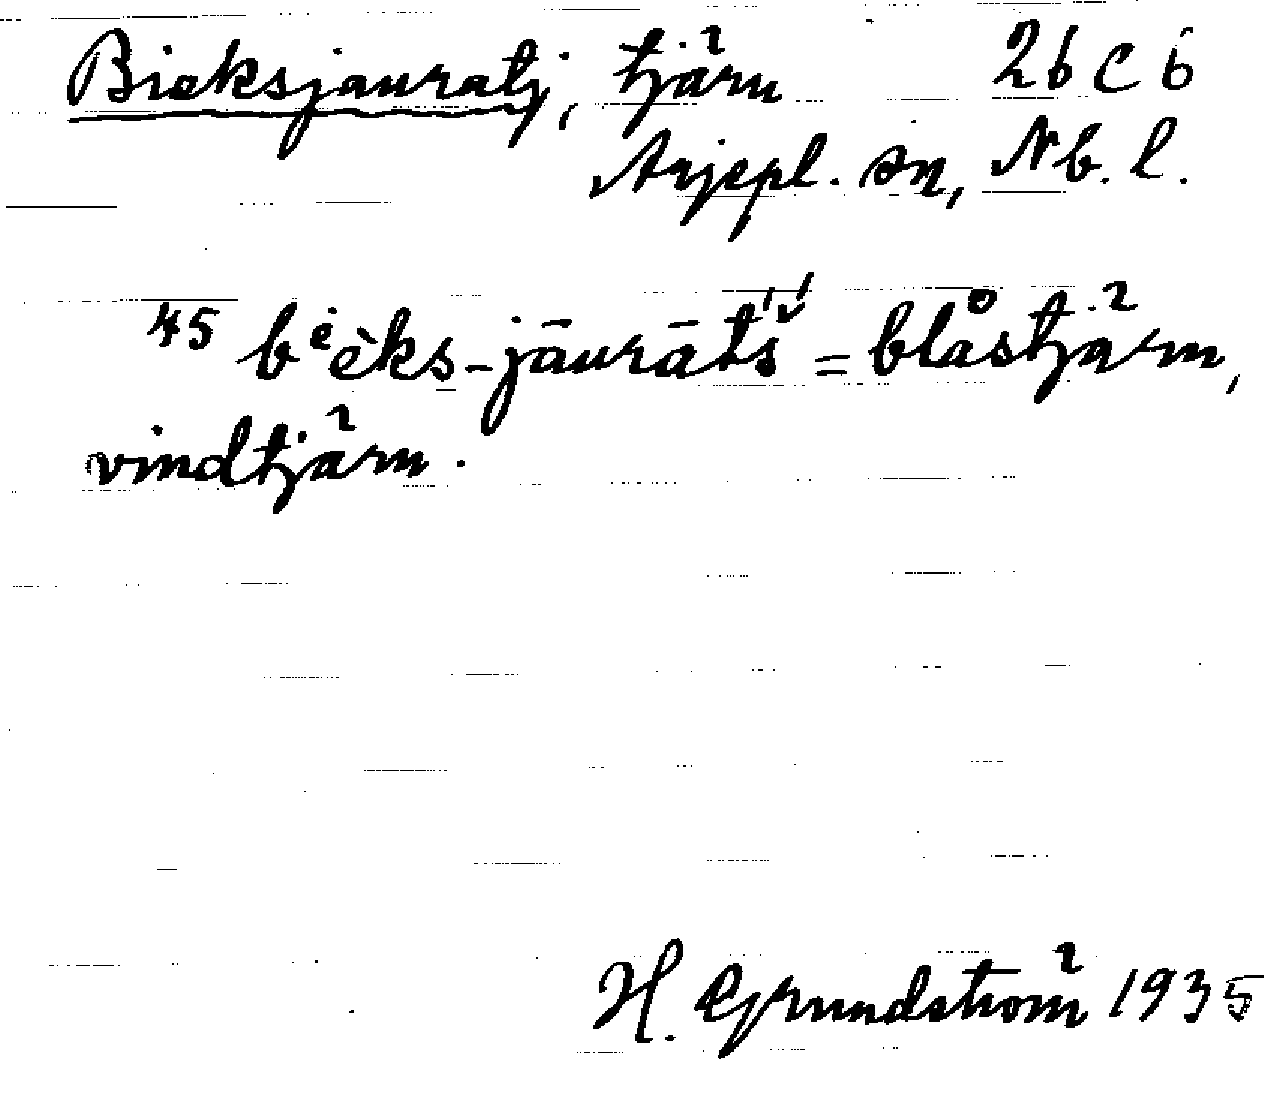 Bieksjauratj, tjärn 26 C 6
Arjepl. sn, Nb. l.
45 bᵉèks-jāurāt́š́ = blåstjärn,
vindtjärn.
H. Grundström 1935